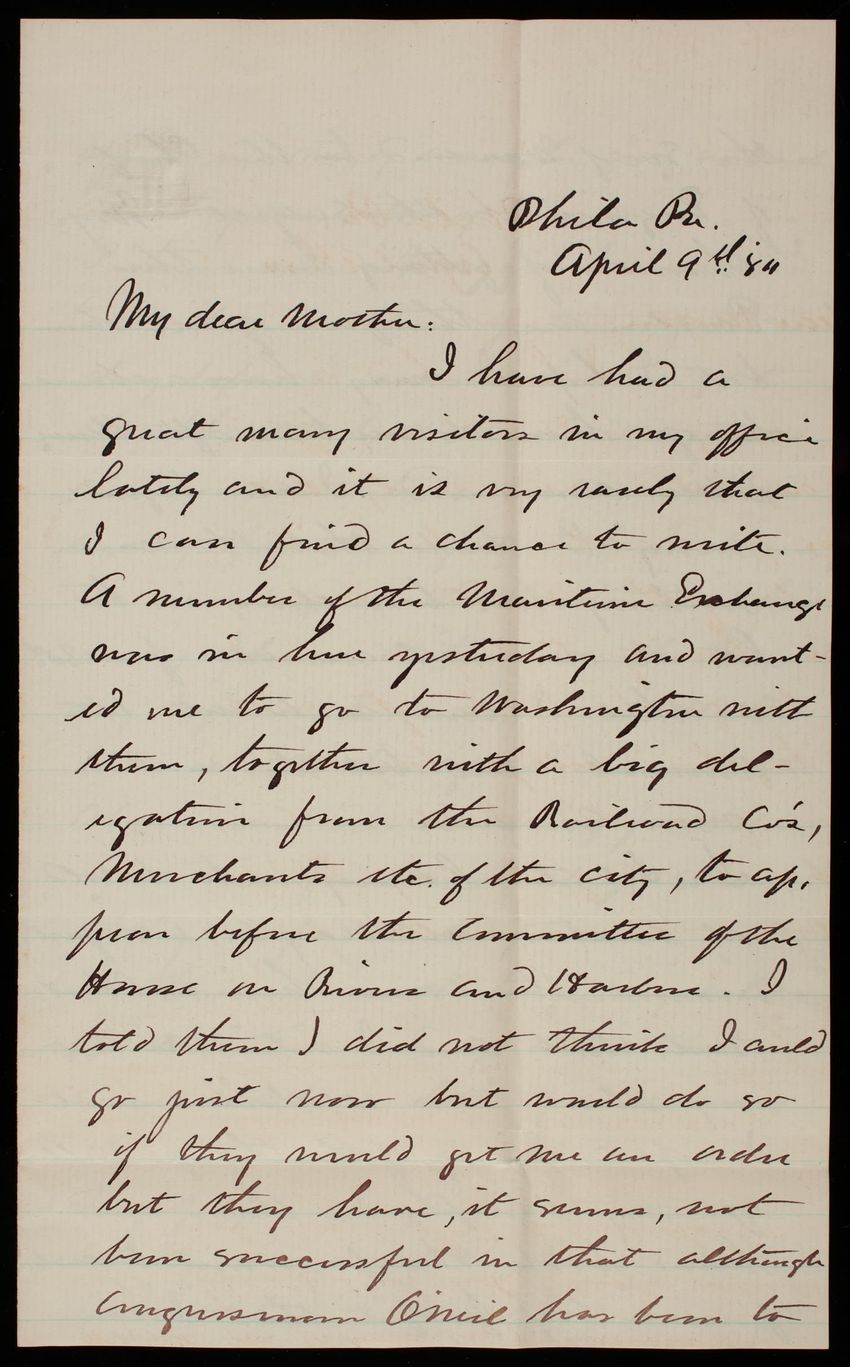 Phila Pa.
April 9th '84
My dear Mother:
I have had a
great many visitors in my office
lately and it is very rarely that
I can find a chance to write.
A number of the Maritime Exchange
was in here yesterday and want-
ed me to go to Washington with
them, together with a big del-
egation from the Railroad Co's,
Merchants etc. of the city, to ap-
pear before the Committee of the
House on Rivers and Harbors. I
told them I did not think I could
go just now but would do so
if they would get me an order
but they have, it seems, not
been successful in that although
Congressman O'Neil has been to